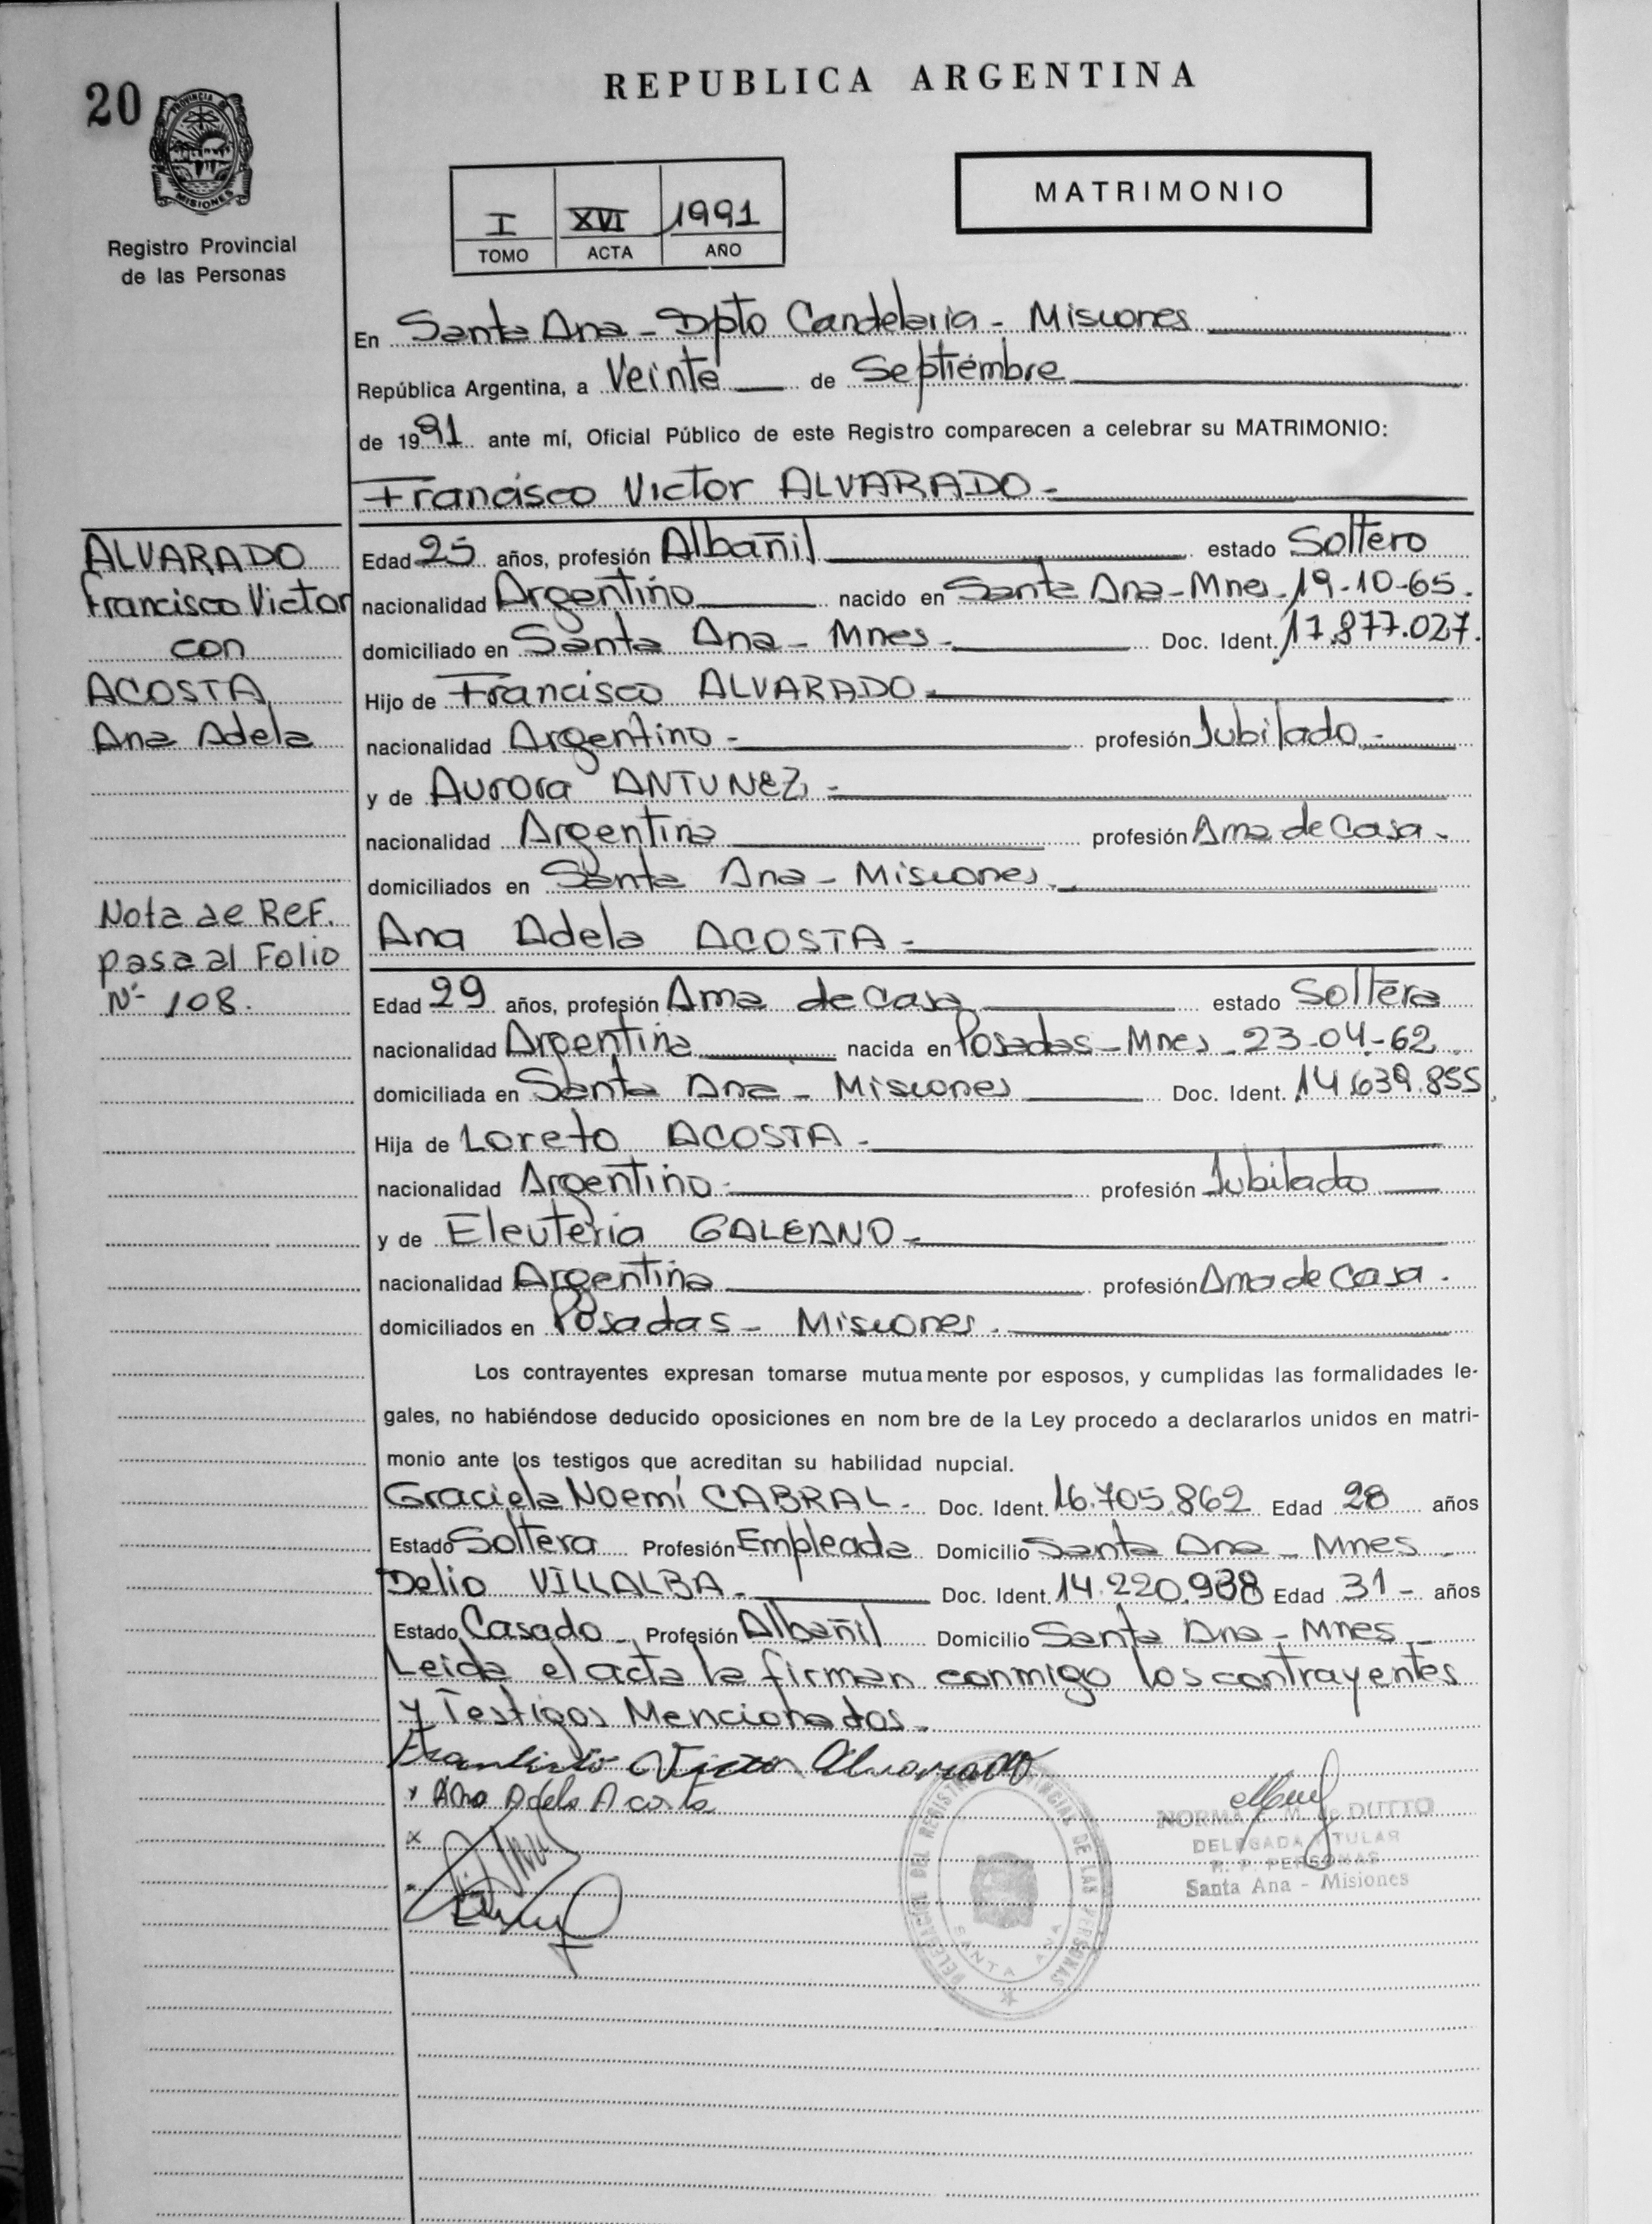 20
PROVINCIA DE
MISIONES
Registro Provincial
de las Personas
REPUBLICA ARGENTINA
MATRIMONIO
I XVI 1991
TOMO ACTA AÑO
En Santa Ana - Dpto Candelaria - Misiones
República Argentina, a Veinte de Septiembre
de 1991 ante mí, Oficial Público de este Registro comparecen a celebrar su MATRIMONIO:
Francisco Victor ALVARADO -
ALVARADO
Francisco Victor
con
ACOSTA
Ana Adela
Nota de Ref.
pasa al Folio
Nº 108.
Edad 25 años, profesión Albañil estado Soltero
nacionalidad Argentino nacido en Santa Ana - Mnes - 19-10-65.
domiciliado en Santa Ana - Mnes - Doc. Ident. 17.877.027.
Hijo de Francisco ALVARADO -
nacionalidad Argentino - profesión Jubilado -
y de Aurora ANTUNEZ -
nacionalidad Argentina profesión Ama de Casa -
domiciliados en Santa Ana - Misiones.
Ana Adela ACOSTA -
Edad 29 años, profesión Ama de casa estado Soltera
nacionalidad Argentina nacida en Posadas - Mnes - 23-04-62.
domiciliada en Santa Ana - Misiones Doc. Ident. 14.639.855.
Hija de Loreto ACOSTA -
nacionalidad Argentino - profesión Jubilado
y de Eleuteria GALEANO -
nacionalidad Argentina profesión Ama de Casa.
domiciliados en Posadas - Misiones.
Los contrayentes expresan tomarse mutuamente por esposos, y cumplidas las formalidades le-
gales, no habiéndose deducido oposiciones en nom bre de la Ley procedo a declararlos unidos en matri-
monio ante los testigos que acreditan su habilidad nupcial.
Graciela Noemí CABRAL - Doc. Ident. 16.705.862 Edad 28 años
Estado Soltera Profesión Empleada Domicilio Santa Ana - Mnes -
Delio VILLALBA - Doc. Ident. 14.220.938 Edad 31 - años
Estado Casado - Profesión Albañil Domicilio Santa Ana - Mnes -
Leida el acta la firman conmigo los contrayentes
y Testigos Mencionados.
Francisco Victor Alvarado
x Ana Adela Acosta
x
DELEGACIÓN DEL REGISTRO PROVINCIAL DE LAS PERSONAS
SANTA ANA
NORMA M. de DUTTO
DELEGADA TITULAR
R. P. PERSONAS
Santa Ana - Misiones